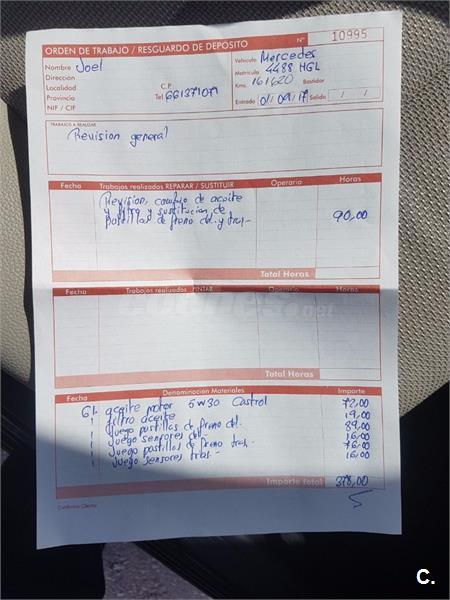 ORDEN DE TRABAJO / RESGUARDO DE DEPÓSITO Nº 10995
Nombre Joel
Dirección
Localidad C.P.
Provincia Tel. 661371071
NIF / CIF
Vehículo Mercedes
Matrícula 4488 HGL
Kms. 161620 Bastidor
Entrada 01/09/17 Salida / /
TRABAJOS A REALIZAR
Revision general
Fecha Trabajos realizados REPARAR / SUSTITUIR Operario Horas
Revisión, cambio de aceite
y filtro y sustitucion de
pastillas de freno del. y tras.- 90,00
Total Horas
Fecha Trabajos realizados PINTAR Operario Horas
coches.net
Total Horas
Fecha Denominación Materiales Importe
6l. aceite motor 5w30 Castrol 72,00
1 filtro aceite 19,00
1 Juego pastillas de freno del. 89,00
1 Juego sensores del. 16,00
1 Juego pastillas de freno tras.- 76,00
1 Juego sensores tras.- 16,00
Importe total 378,00
Conforme Cliente
C.